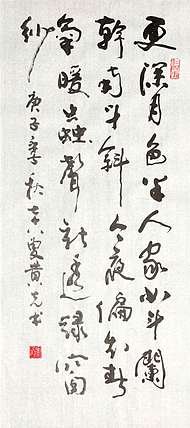 更深月色半人家北斗闌
幹南斗斜今夜偏知春
氣暖蟲聲新透綠窗
紗 庚子季秋 叟黄